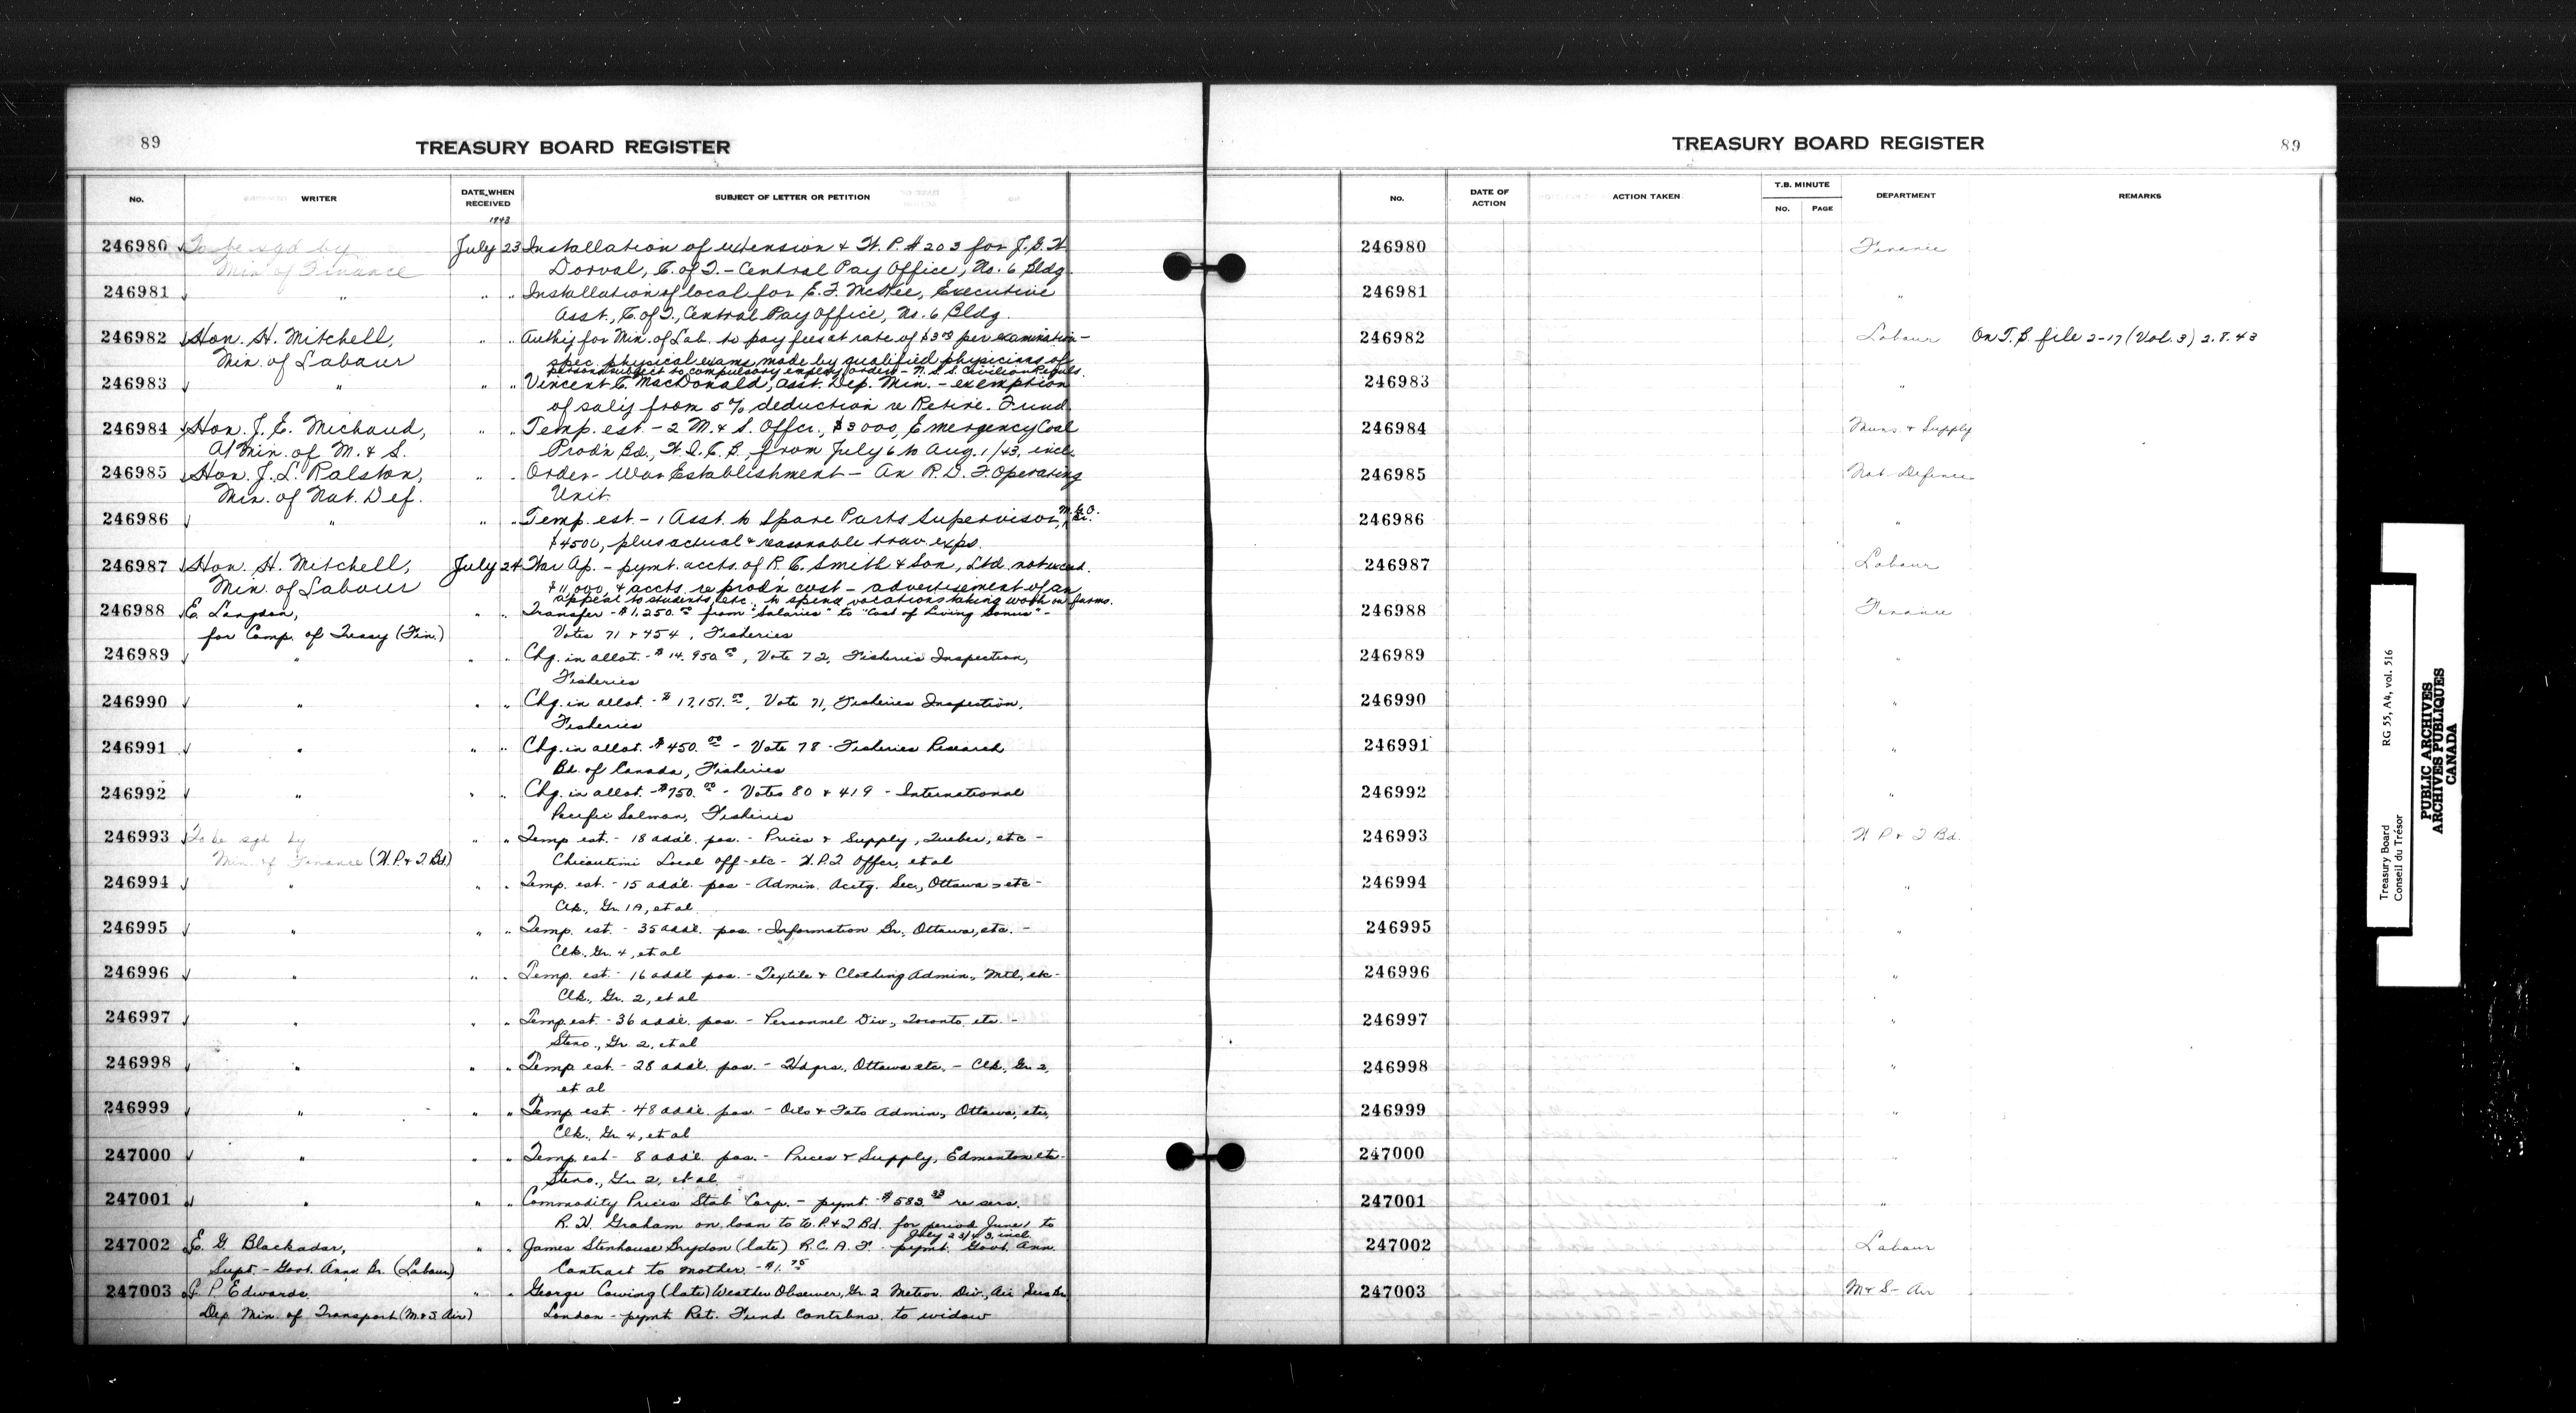 89
TREASURY BOARD REGISTER
No. WRITER DATE WHEN RECEIVED SUBJECT OF LETTER OR PETITION
1943
246980 To be sgd by July 23 Installation of extension & W. P. # 203 for J. G. H.
Min. of Finance Dorval, C. of T. - Central Pay Office, No. 6 Bldg.
246981 " " " Installation of local for E. F. McKee, Executive
Asst., C. of T., Central Pay Office, No. 6 Bldg.
246982 Hon. H. Mitchell, " " Auth'y for Min. of Lab. to pay fees at rate of $3.00 per examination -
Min. of Labour spec. physical exams made by qualified physicians of
persons subject to compulsory employ. orders - N. S. S. Civilian Reguls.
246983 " " " Vincent C. MacDonald, Asst. Dep. Min. - exemption
of sal'y from 5% deduction re Retire. Fund.
246984 Hon. J. E. Michaud, " " Temp. est. - 2 M. & S. Offcr., $3000, Emergency Coal
A/ Min. of M. & S. Prod'n Bd., from July 6 to Aug. 1/43, incl.
246985 Hon. J. L. Ralston, " " Order - War Establishment - An R. D. F. Operating
Min. of Nat. Def. Unit.
246986 " " " Temp. est. - 1 Asst. to Spare Parts Supervisor, M. G. O. Br.
$4500, plus actual & reasonable trav. exps.
246987 Hon. H. Mitchell, July 24 War Ap. - pymt. accts. of R. C. Smith & Son, Ltd. not exceed.
Min. of Labour $11,000, & accts. re prod'n cost - advertisement of an
appeal to students, etc. to spend vacations taking work on farms.
246988 E. Langdon, " " Transfer - $1,250.00 from "Salaries" to "Cost of Living Bonus" -
for Comp. of Treasy (Fin.) Votes 71 & 454, Fisheries
246989 " " " Chg. in allot. - $14,950.00, Vote 72, Fisheries Inspection,
Fisheries
246990 " " " Chg. in allot. - $17,151.00, Vote 71, Fisheries Inspection,
Fisheries
246991 " " " Chg. in allot. - $450.00 - Vote 78 - Fisheries Research
Bd. of Canada, Fisheries
246992 " " " Chg. in allot. - $750.00 - Votes 80 & 419 - International
Pacific Salmon, Fisheries
246993 To be sgd by " " Temp est. - 18 add'l. pos. - Prices & Supply, Quebec, etc -
Min. of Finance (W. P. & T. Bd.) Chicoutimi Local off - etc - W. P. T Offcr, et al
246994 " " " Temp. est. - 15 add'l. pos - Admin. Acctg. Sec., Ottawa - etc -
Clk., Gr. 1A, et al
246995 " " " Temp. est. - 35 add'l. pos. - Information Br., Ottawa, etc. -
Clk. Gr. 4, et al
246996 " " " Temp. est. - 16 add'l pos. - Textile & Clothing Admin., Mtl., etc -
Clk., Gr. 2, et al
246997 " " " Temp. est. - 36 add'l. pos. - Personnel Div., Toronto, etc. -
Steno., Gr. 2, et al
246998 " " " Temp est. - 28 add'l. pos. - Hdqrs., Ottawa etc. - Clk., Gr. 2,
et al
246999 " " " Temp est. - 48 add'l. pos. - Oils & Fats Admin., Ottawa, etc,
Clk., Gr. 4, et al
247000 " " " Temp. est - 8 add'l. pos. - Prices & Supply, Edmonton etc -
Steno., Gr. 2, et al.
247001 " " " Commodity Prices Stab. Corp. - pymt. - $583.33 re sers.
R. H. Graham on loan to W. P. & T Bd. for period June 1 to
July 23/43 incl.
247002 E. G. Blackadar, " " James Stenhouse Brydon (late) R. C. A. F. - pymt. Govt. Ann.
Supt. - Govt. Ann. Br. (Labour) Contract to mother - $1.75
247003 C. P. Edwards " " George Cowing (late) Weather Observer, Gr. 2 Meteor. Div., Air Serv. Br.
Dep. Min. of Transport (M. & S. Air) London - pymt. Ret. Fund Contribns. to widow
TREASURY BOARD REGISTER
89
No. DATE OF ACTION ACTION TAKEN T.B. MINUTE No. PAGE DEPARTMENT REMARKS
246980 Finance
246981 "
246982 Labour On T. B. file 2-17 (Vol. 3) 2.8.43
246983 "
246984 Muns. & Supply
246985 Nat. Defence
246986 "
246987 Labour
246988 Finance
246989 "
246990 "
246991 "
246992 "
246993 W P & T Bd.
246994 "
246995 "
246996 "
246997 "
246998 "
246999 "
247000 "
247001 "
247002 Labour
247003 M & S - Air
Treasury Board
Conseil du Trésor
RG 55, A4, vol. 516
PUBLIC ARCHIVES
ARCHIVES PUBLIQUES
CANADA